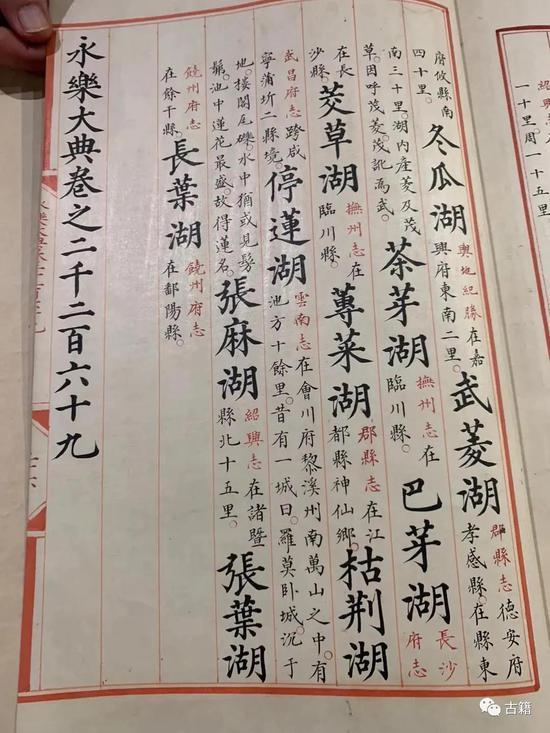 紹興
一十里周一十五
府攸縣南
四十里。
冬瓜湖
輿地紀勝在嘉
興府東南二里。
武菱湖
郡縣志德安府
孝感縣。在縣東
南三十里。湖内產菱及茂
草。因呼茂菱。茂訛為武。
茶芽湖
撫州志在
臨川縣。
巴芽湖
長沙
府志
在長
沙縣。
茭草湖
撫州志在
臨川縣。
蓴菜湖
郡縣志在江
都縣神仙鄉。
枯荆湖
武昌府志跨咸
寧浦圻二縣境。
停蓮湖
雲南志在會川府黎溪州南萬山之中。有
池方十餘里。昔有一城曰。羅莫卧城。沉于
地。樓閣尾礫。水中猶或見髣
髴。池中蓮花最盛。故得蓮名。
張麻湖
紹興志在諸暨
縣北十五里。
張葉湖
饒州府志
在餘干縣。
長葉湖
饒州府志
在鄱陽縣。
永樂大典卷之二千二百六十九
古籍